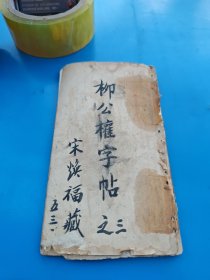 柳公權字帖之三
宋煥福藏
五三.